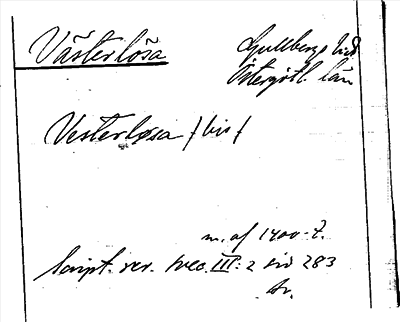 Västerlösa
Gullbergs hd
Östergötl. län
Vesterløsa /bis/
m. af 1400-t.
Script. rer. svec. III: 2 sid 283